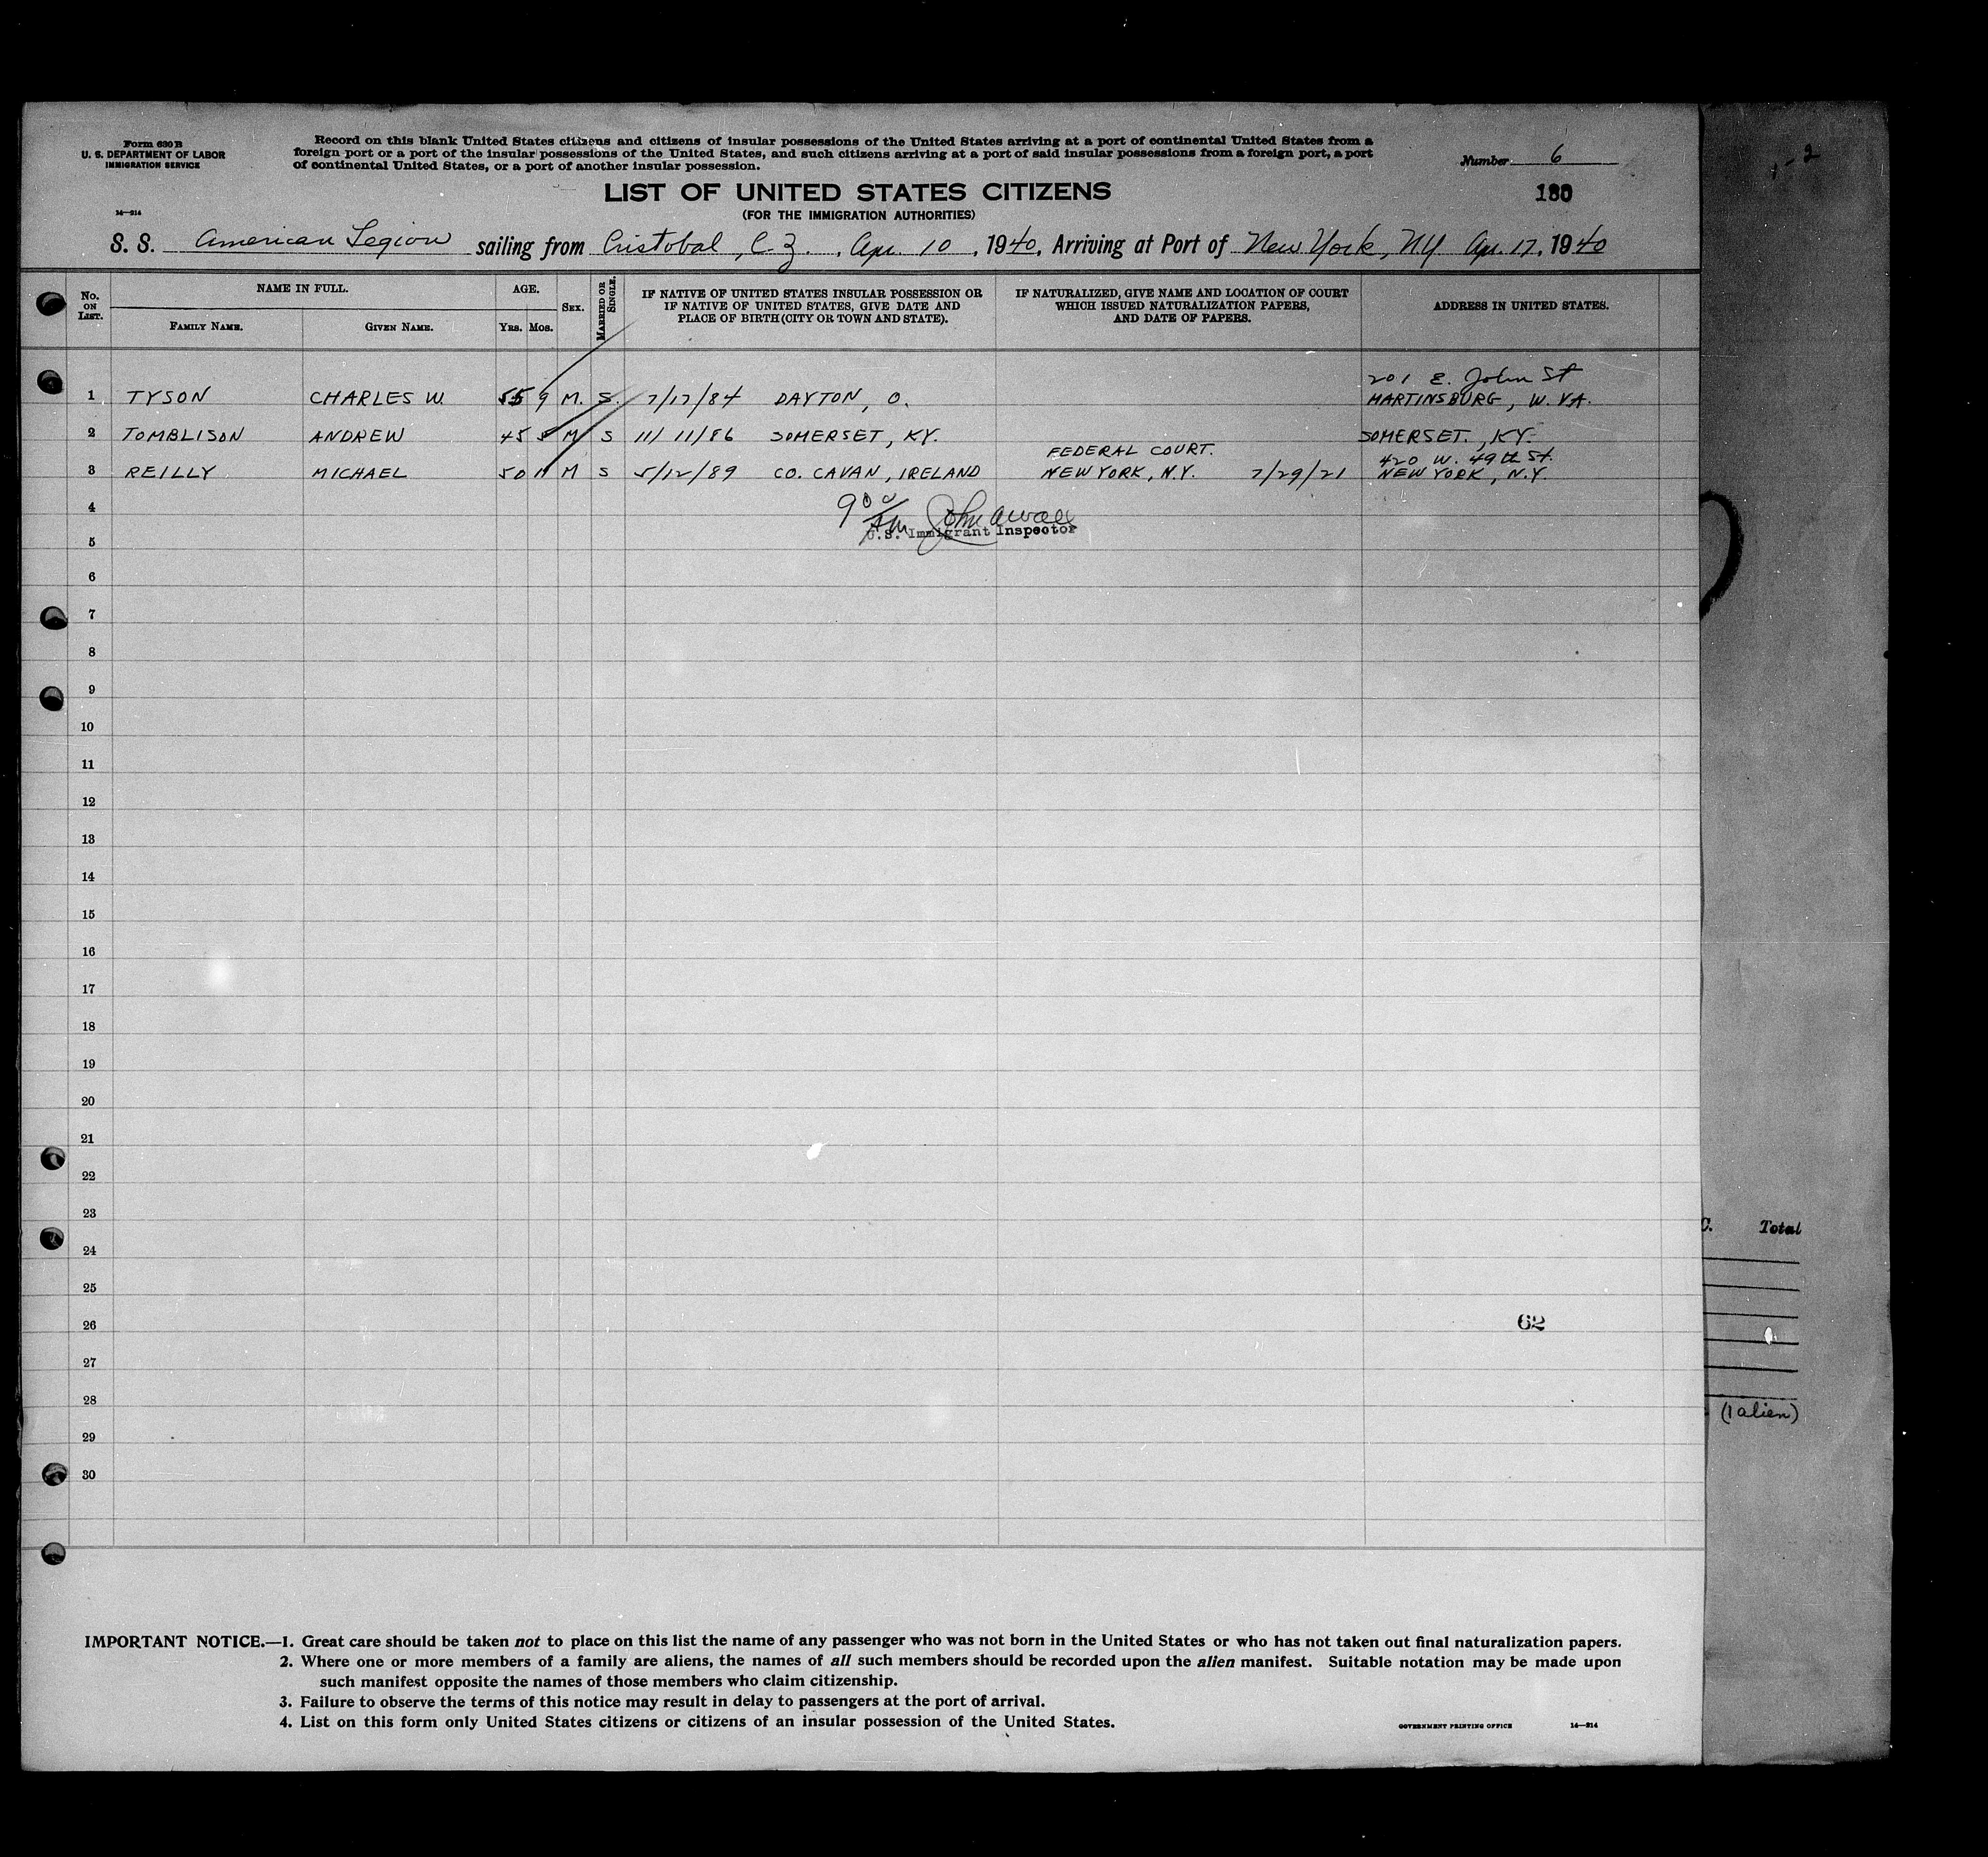 Form 630 B
U. S. DEPARTMENT OF LABOR
IMMIGRATION SERVICE
Record on this blank United States citizens and citizens of insular possessions of the United States arriving at a port of continental United States from a
foreign port or a port of the insular possessions of the United States, and such citizens arriving at a port of said insular possessions from a foreign port, a port
of continental United States, or a port of another insular possession.
Number 6
LIST OF UNITED STATES CITIZENS
180
(FOR THE IMMIGRATION AUTHORITIES)
14—214
S. S. American Legion sailing from Cristobal, C.Z., Apr. 10, 1940, Arriving at Port of New York, N.Y. Apr. 17, 1940
No. ON LIST.
NAME IN FULL.
FAMILY NAME. GIVEN NAME.
AGE.
YRS. MOS.
SEX.
MARRIED OR SINGLE.
IF NATIVE OF UNITED STATES INSULAR POSSESSION OR
IF NATIVE OF UNITED STATES, GIVE DATE AND
PLACE OF BIRTH (CITY OR TOWN AND STATE).
IF NATURALIZED, GIVE NAME AND LOCATION OF COURT
WHICH ISSUED NATURALIZATION PAPERS,
AND DATE OF PAPERS.
ADDRESS IN UNITED STATES.
201 E. John St
1 TYSON CHARLES W. 55 9 M. S. 7/17/84 DAYTON, O. MARTINSBURG, W. VA.
2 TOMBLISON ANDREW 45 5 M S 11/11/86 SOMERSET, KY. SOMERSET., KY.
FEDERAL COURT. 420 W. 49th St.
3 REILLY MICHAEL 50 11 M S 5/12/89 CO. CAVAN, IRELAND NEW YORK, N.Y. 7/29/21 NEW YORK, N.Y.
4 9 00 AM
5 U.S. Immigrant Inspector
6
7
8
9
10
11
12
13
14
15
16
17
18
19
20
21
22
23
24
25
26
27
28
29
30
62
C. Total
(1 alien)
IMPORTANT NOTICE.—1. Great care should be taken not to place on this list the name of any passenger who was not born in the United States or who has not taken out final naturalization papers.
2. Where one or more members of a family are aliens, the names of all such members should be recorded upon the alien manifest. Suitable notation may be made upon
such manifest opposite the names of those members who claim citizenship.
3. Failure to observe the terms of this notice may result in delay to passengers at the port of arrival.
4. List on this form only United States citizens or citizens of an insular possession of the United States.
GOVERNMENT PRINTING OFFICE 14—214